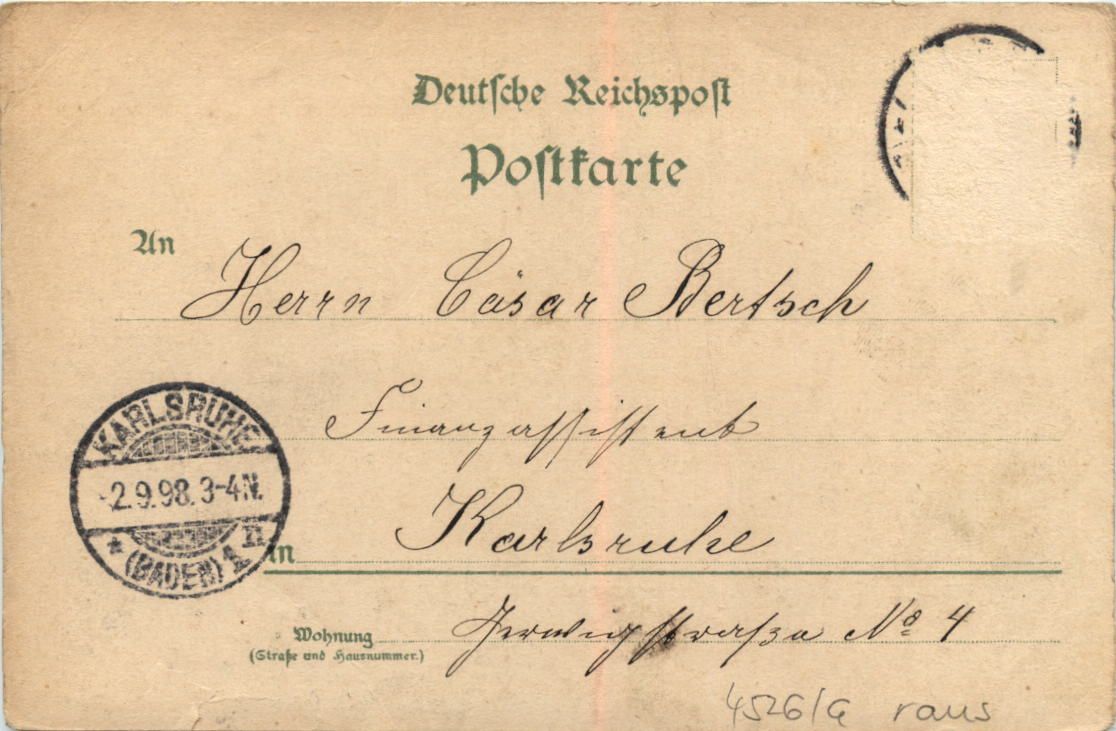 Deutsche Reichspost
Postkarte
An Herrn Cäsar Bertsch
Finanzassistent
KARLSRUHE
2.9.98. 3-4N.
* (BADEN) 1 n
in Karlsruhe
Wohnung Gerwigstraße No 4
(Straße und Hausnummer.)
4526/a raus